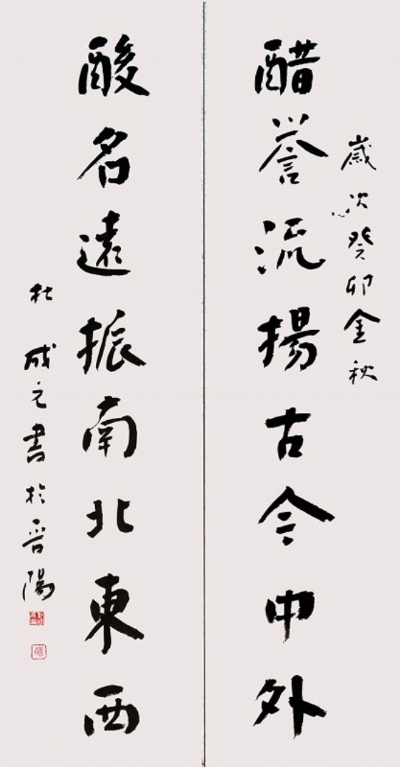 歲次癸卯金秋
醋譽流揚古今中外
酸名遠振南北東西
杜成元書於晉陽